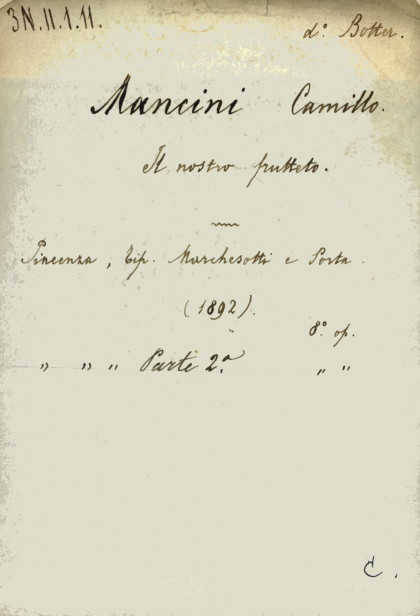 3N.II.1.11.
d.° Botter.
Mancini Camillo.
Il nostro frutteto.
Piacenza, Tip. Marchesotti e Porta.
(1892).
8.° op.
" " " Parte 2.a " "
C.